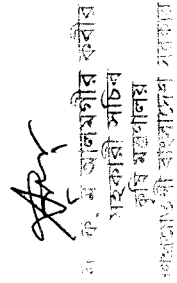 ম আলমগীর কবীর
সহকারী সচিব
কৃষি মন্ত্রণালয়
গণপ্রজাতন্ত্রী বাংলাদেশ সরকার